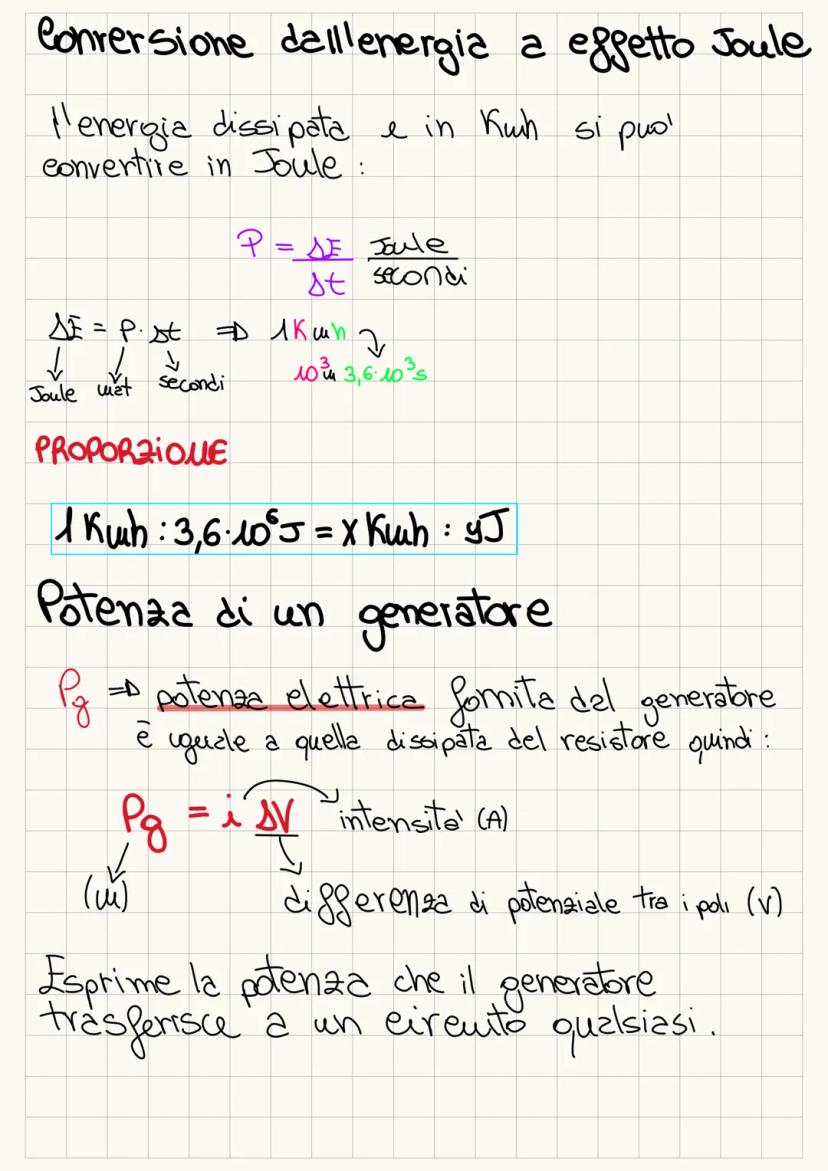 Conversione dall'energia a effetto Joule
l'energia dissipata e in Kwh si puo'
convertire in Joule :
P = ΔE/Δt Joule/secondi
ΔE = P · Δt ⇒ 1Kwh
Joule wat secondi 10³w 3,6·10³s
PROPORZIONE
1 Kwh : 3,6·10⁶J = x Kwh : yJ
Potenza di un generatore
Pg ⇒ potenza elettrica fornita dal generatore
è uguale a quella dissipata del resistore quindi :
Pg = i ΔV intensita' (A)
(w) differenza di potenziale tra i poli (V)
Esprime la potenza che il generatore
trasferisce a un circuito qualsiasi.